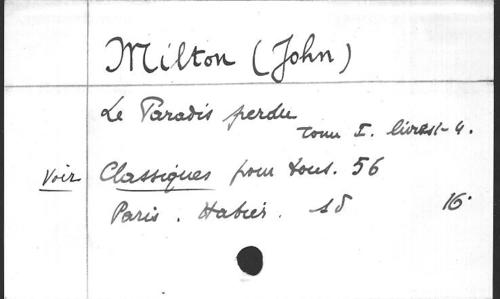 Milton (John)
Le Paradis perdu
Tome I. livres 1-4.
Voir Classiques pour tous. 56
Paris. Hatier. sd 16°